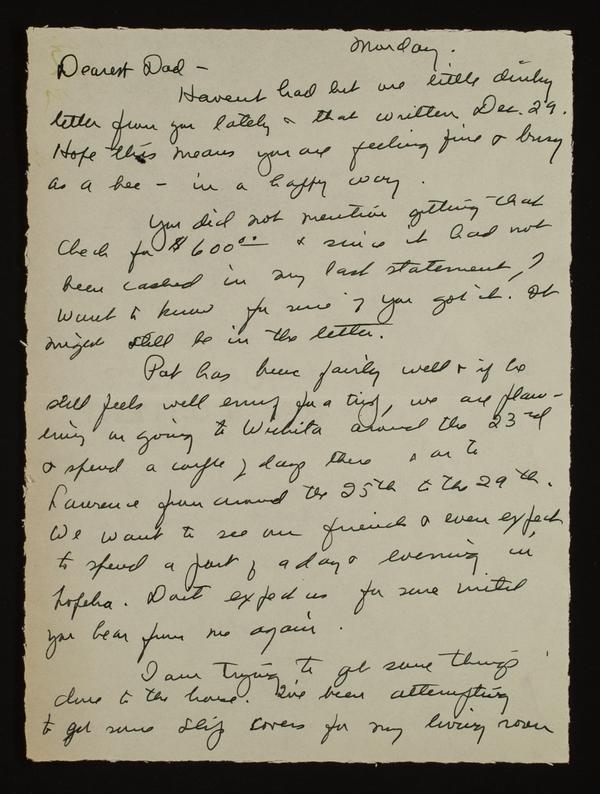 Monday.
Dearest Dad -
Havent had but one little dinky
letter from you lately & that written Dec. 29.
Hope this means you are feeling fine & busy
as a bee - in a happy way.
You did not mention getting that
check for $600.00 & since it had not
been cashed in my last statement, I
want to know for sure if you got it. It
might still be in the letter.
Pat has been fairly well & if he
still feels well enuf for a trip, we are plan-
ning on going to Wichita around the 23rd
& spend a couple of days there & on to
Lawrence from around the 25th to the 29th.
We want to see our friends & even expect
to spend a part of a day & evening in
Topeka. Don't expect us for sure until
you hear from me again.
I am trying to get some things
done to the house. I've been attempting
to get some slip covers for my living room